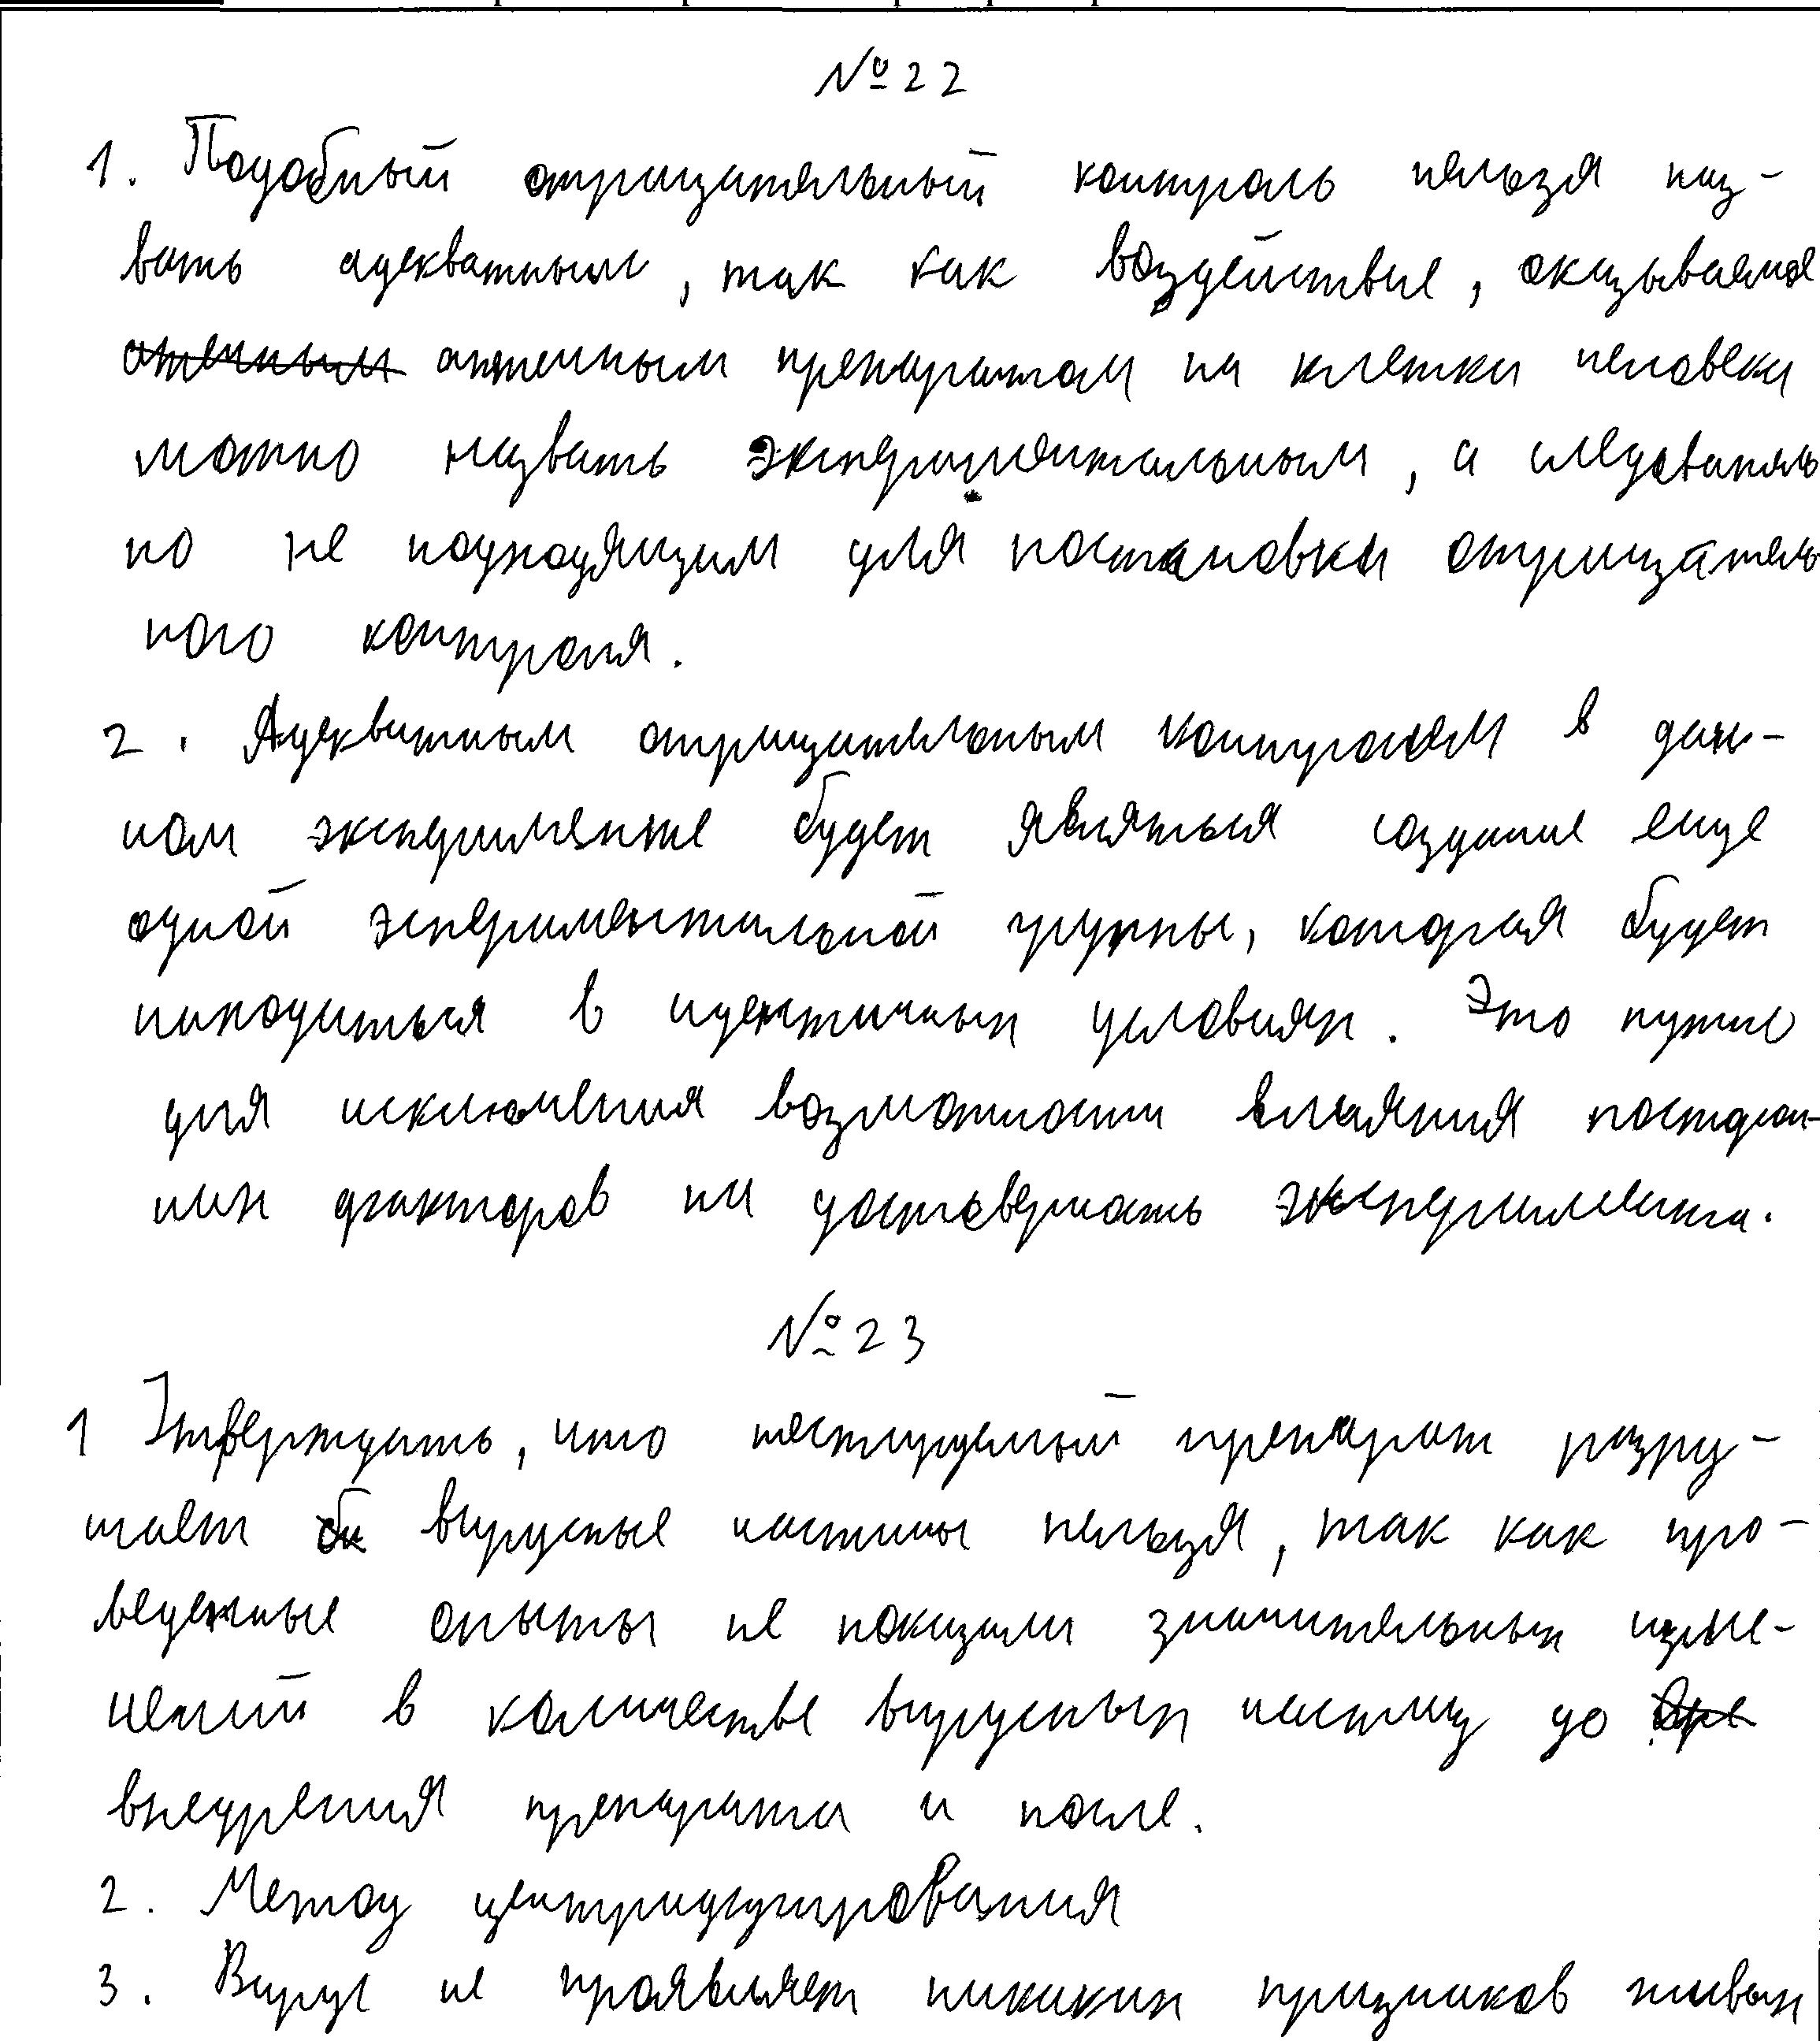 № 22
1. Подобный отрицательный контроль нельзя наз-
вать адекватным, так как воздействие, оказываемое
аптечным препаратом на клетки человека
можно назвать экспериментальным, а следователь
но не подходящим для постановки отрицатель
ного контроля.
2. Адекватным отрицательным контролем в дан-
ном эксперименте будет являться создание еще
одной эспериментальной группы, которая будет
находиться в идентичных условиях. Это нужно
для исключения возможности влияния посторон-
них факторов на достоверность эксперимента.
№ 23
1 Утверждать, что тестируемый препарат разру-
шает вирусные частицы нельзя, так как про-
веденные опыты не показали значительных изме-
нений в количестве вирусных частиц до
внедрения препарата и после.
2. Метод центрифугирования
3. Вирус не проявляет никаких признаков живых